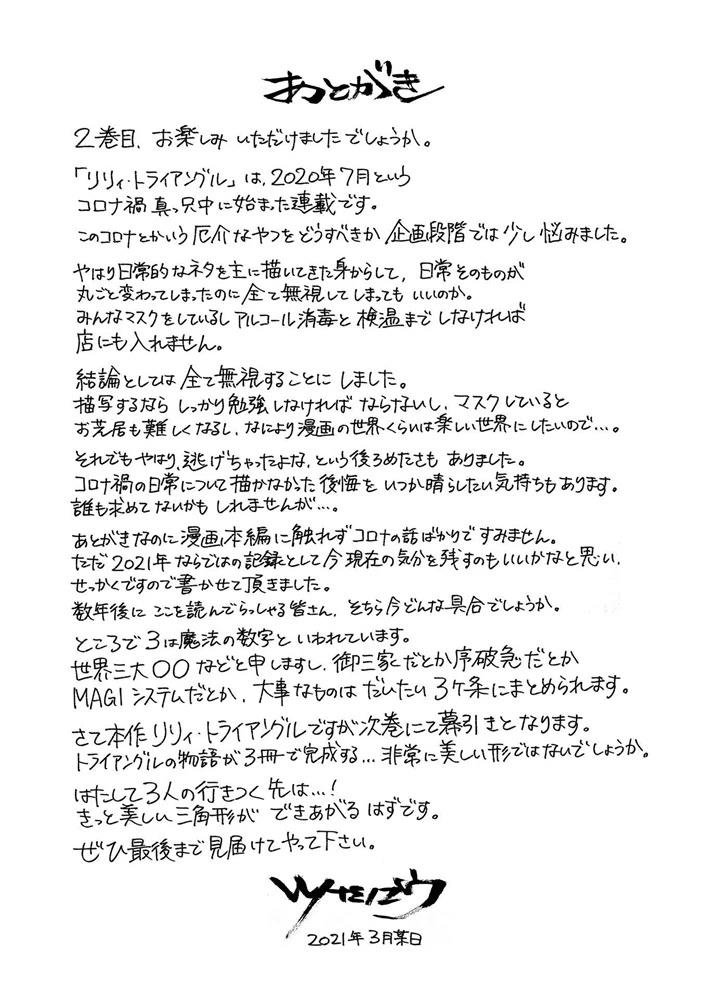 あとがき
2巻目、お楽しみいただけましたでしょうか。
「リリィ・トライアングル」は、2020年7月という
コロナ禍真っ只中に始まった連載です。
このコロナとかいう厄介なやつをどうすべきか企画段階では少し悩みました。
やはり日常的なネタを主に描いてきた身からして、日常そのものが
丸ごと変わってしまったのに全て無視してしまってもいいのか。
みんなマスクをしているしアルコール消毒と検温までしなければ
店にも入れません。
結論としては全て無視することにしました。
描写するならしっかり勉強しなければならないし、マスクしていると
お芝居も難しくなるし、なにより漫画の世界くらいは楽しい世界にしたいので…。
それでもやはり、逃げちゃったよな、という後ろめたさもありました。
コロナ禍の日常について描かなかった後悔をいつか晴らしたい気持ちもあります。
誰も求めてないかもしれませんが…。
あとがきなのに漫画本編に触れずコロナの話ばかりですみません。
ただ2021年ならではの記録として今現在の気分を残すのもいいかなと思い、
せっかくですので書かせて頂きました。
数年後にここを読んでらっしゃる皆さん、そちら今どんな具合でしょうか。
ところで3は魔法の数字といわれています。
世界三大〇〇などと申しますし、御三家だとか序破急だとか
MAGIシステムだとか、大事なものはだいたい3ケ条にまとめられます。
さて本作リリィ・トライアングルですが次巻にて幕引きとなります。
トライアングルの物語が3冊で完成する…非常に美しい形ではないでしょうか。
はたして3人の行きつく先は…!
きっと美しい三角形ができあがるはずです。
ぜひ最後まで見届けてやって下さい。
2021年3月某日